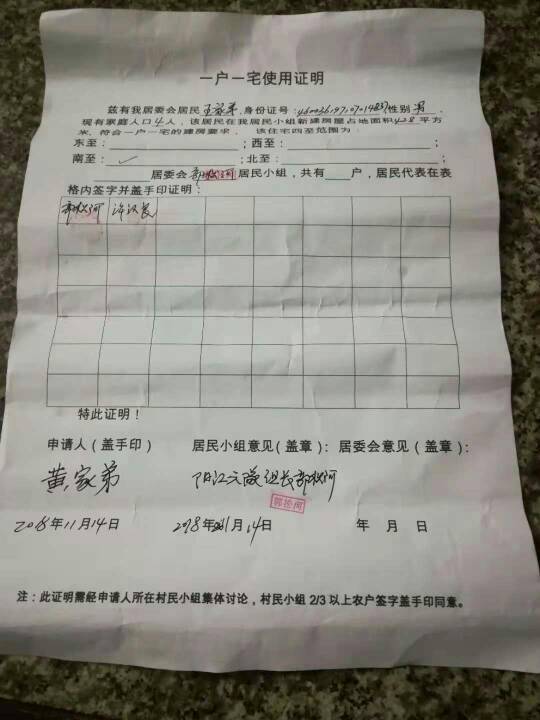 一户一宅使用证明
兹有我居委会居民 身份证号: 性别 男 .
现有家庭人口 4 人，该居民在我居民小组新建房屋占地面积 428 平方
米，符合一户一宅的建房要求， 该住宅四至范围为：
东至： ；西至： ；
南至： ✓ ；北至： ；
居委会 居民小组，共有 户，居民代表在表
格内签字并盖手印证明：
许汉良
特此证明！
申请人（盖手印） 居民小组意见（盖章）： 居委会意见（盖章）：
黄家弟 阳江 组长
2018年11月14日 2018年 11月14日 年 月 日
注：此证明需经申请人所在村民小组集体讨论，村民小组 2/3 以上农户签字盖手印同意。